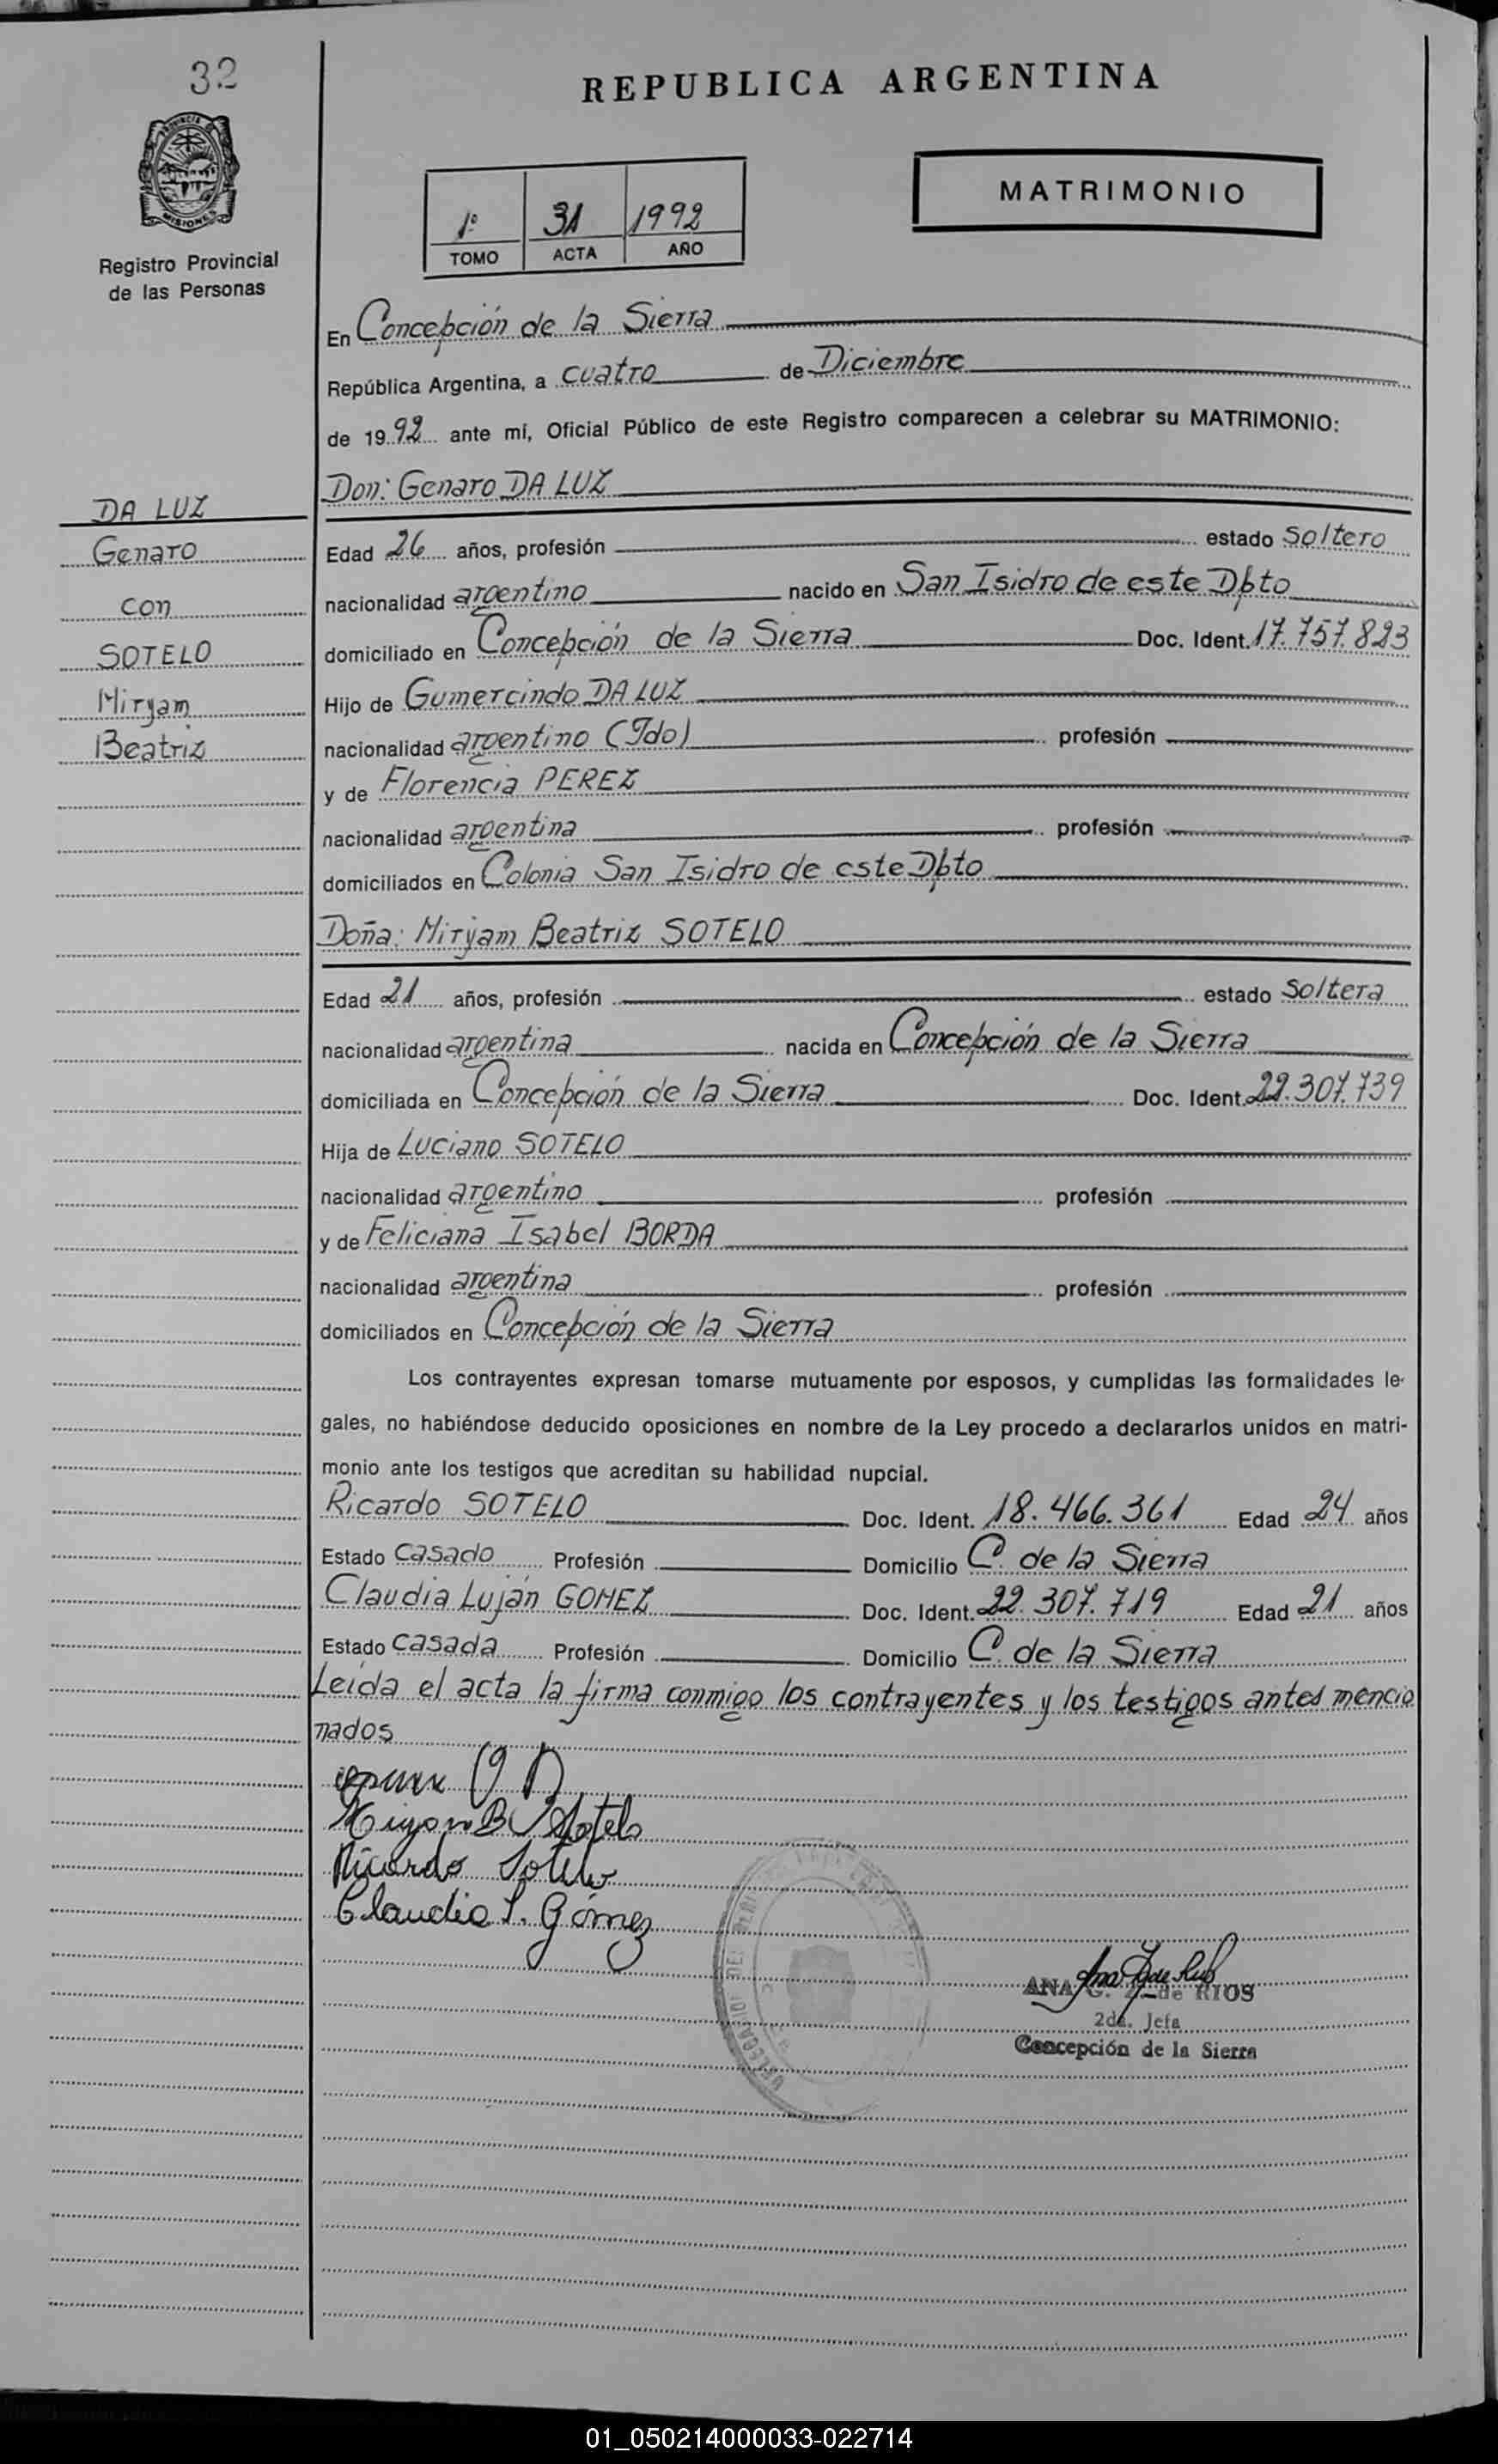 32
REPUBLICA ARGENTINA
PROVINCIA DE
MISIONES
Registro Provincial
de las Personas
MATRIMONIO
1º 31 1992
TOMO ACTA AÑO
En Concepción de la Sierra
República Argentina, a cuatro de Diciembre
de 1992 ante mí, Oficial Público de este Registro comparecen a celebrar su MATRIMONIO:
DA LUZ
Genaro
con
SOTELO
Miryam
Beatriz
Don: Genaro DA LUZ
Edad 26 años, profesión estado Soltero
nacionalidad argentino nacido en San Isidro de este Dpto
domiciliado en Concepción de la Sierra Doc. Ident. 17.757.823
Hijo de Gumercindo DA LUZ
nacionalidad argentino (Fdo) profesión
y de Florencia PEREZ
nacionalidad argentina profesión
domiciliados en Colonia San Isidro de este Dpto
Doña: Miryam Beatriz SOTELO
Edad 21 años, profesión estado Soltera
nacionalidad argentina nacida en Concepción de la Sierra
domiciliada en Concepción de la Sierra Doc. Ident. 22.307.739
Hija de Luciano SOTELO
nacionalidad argentino profesión
y de Feliciana Isabel BORDA
nacionalidad argentina profesión
domiciliados en Concepción de la Sierra
Los contrayentes expresan tomarse mutuamente por esposos, y cumplidas las formalidades le-
gales, no habiéndose deducido oposiciones en nombre de la Ley procedo a declararlos unidos en matri-
monio ante los testigos que acreditan su habilidad nupcial.
Ricardo SOTELO Doc. Ident. 18.466.361 Edad 24 años
Estado Casado Profesión Domicilio C. de la Sierra
Claudia Luján GOMEZ Doc. Ident. 22.307.719 Edad 21 años
Estado Casada Profesión Domicilio C. de la Sierra
Leída el acta la firma conmigo los contrayentes y los testigos antes mencio
nados
Miryam B Sotelo
Ricardo Sotelo
Claudia L. Gómez
ANA G. Z. de RIOS
2da. Jefa
Concepción de la Sierra
01_050214000033-022714